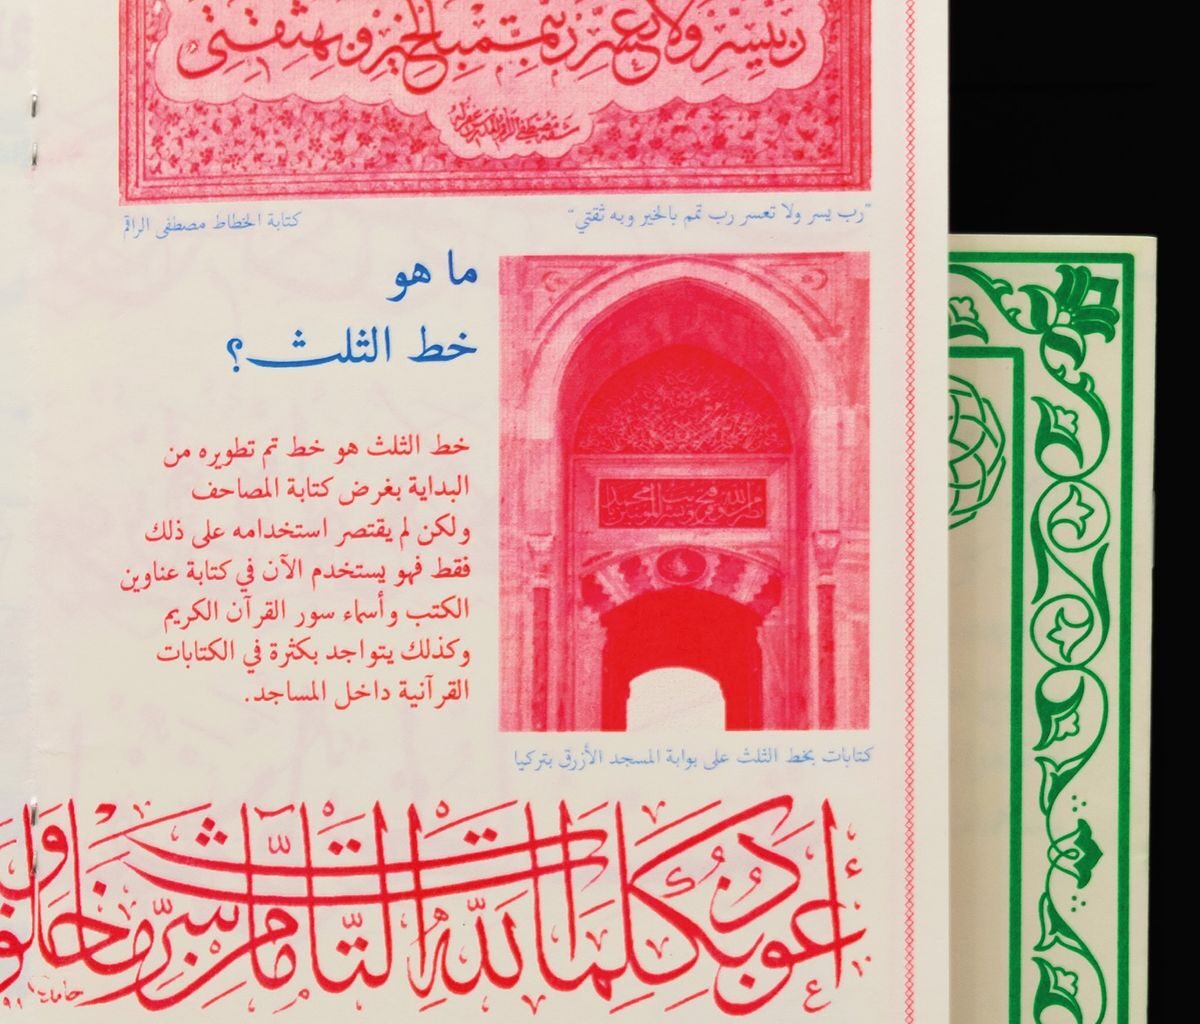 رب يسر ولا تعسر رب تمم بالخير وبه ثقتي
"رب يسر ولا تعسر رب تمم بالخير وبه ثقتي"
كتابة الخطاط مصطفى الراقم
ما هو
خط الثلث؟
خط الثلث هو خط تم تطويره من
البداية بغرض كتابة المصاحف
ولكن لم يقتصر استخدامه على ذلك
فقط فهو يستخدم الآن في كتابة عناوين
الكتب وأسماء سور القرآن الكريم
وكذلك يتواجد بكثرة في الكتابات
القرآنية داخل المساجد.
نصر من الله وفتح قريب وبشر المؤمنين يا محمد
كتابات بخط الثلث على بوابة المسجد الأزرق بتركيا
أعوذ بكلمات الله التامات من شر ما خلق
حامد